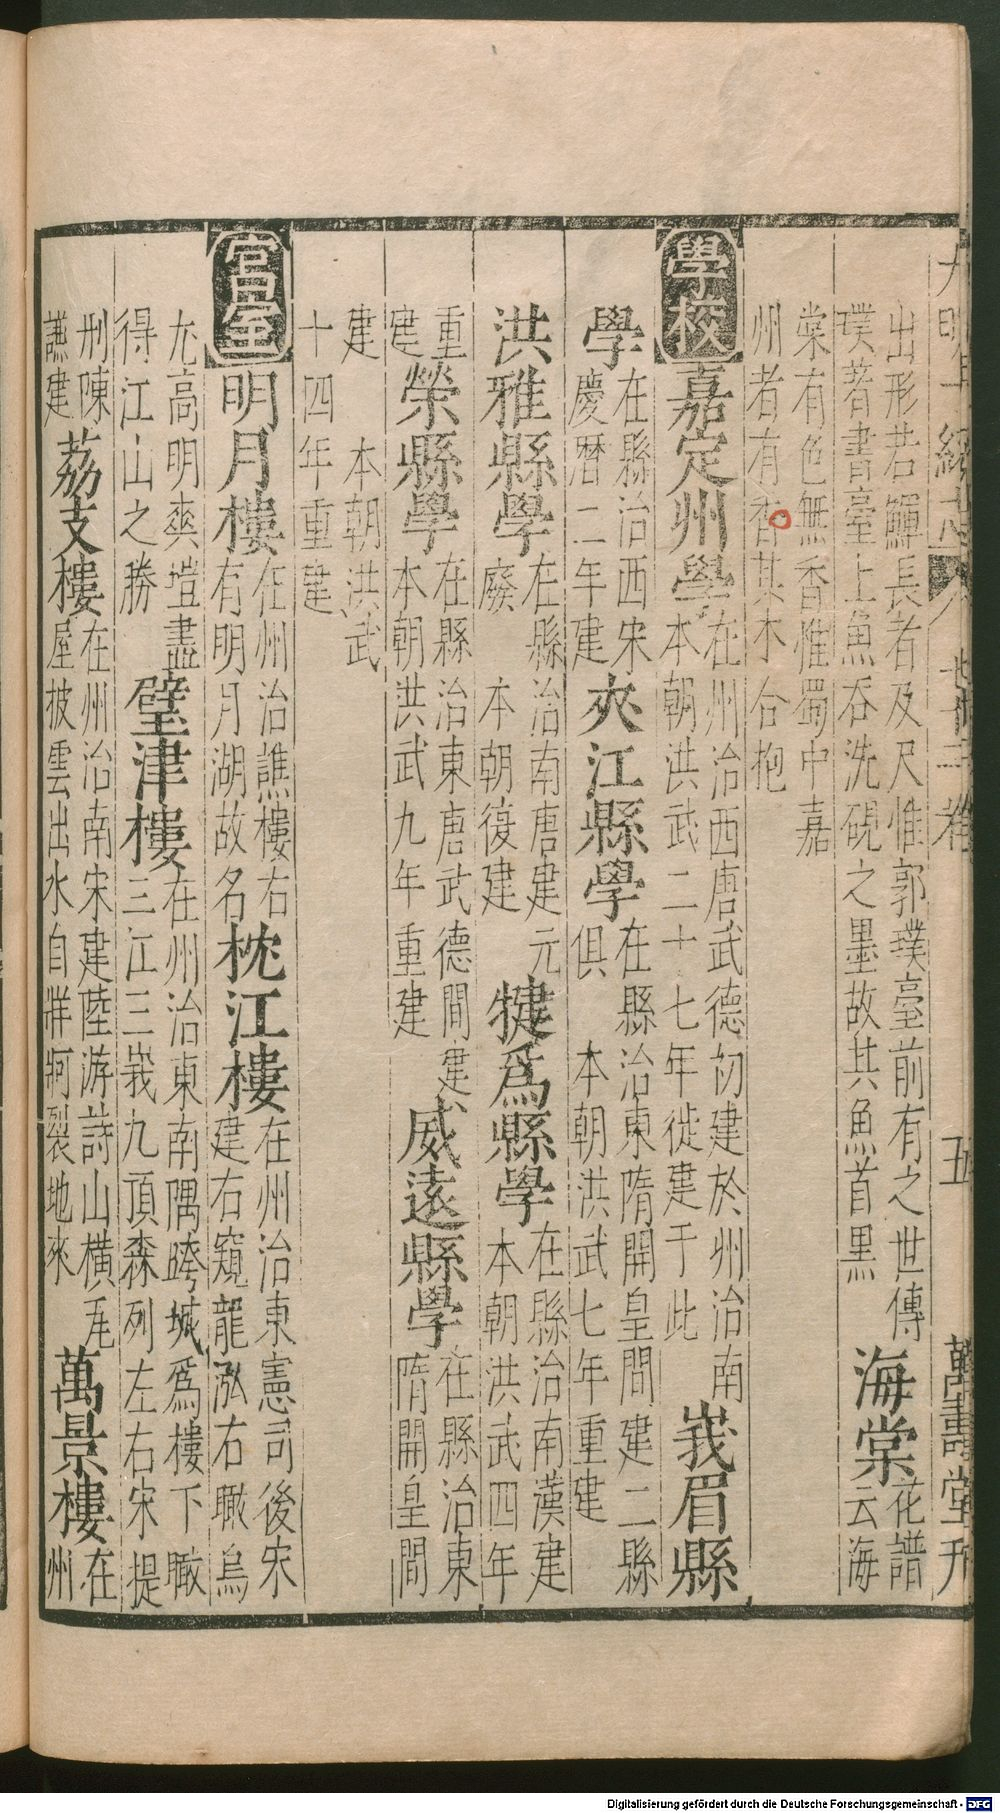 大明一統志 卷七十二 五 萬壽堂刊
出形若鱓長者及尺惟郭璞臺前有之世傳
璞著書臺上魚吞洗硯之墨故其魚首黑
海棠
花譜
云海
棠有色無香惟蜀中嘉
州者有香其木合抱
學校
嘉定州學
在州治西唐武德初建於州治南
本朝洪武二十七年徙建于此
峩眉縣
學
在縣治西宋
慶曆二年建
夾江縣學
在縣治東隋開皇間建二縣
俱 本朝洪武七年重建
洪雅縣學
在縣治南唐建元
廢 本朝復建
犍爲縣學
在縣治南漢建
本朝洪武四年
重
建
榮縣學
在縣治東唐武德間建
本朝洪武九年重建
威遠縣學
在縣治東
隋開皇間
建 本朝洪武
十四年重建
宮室
明月樓
在州治譙樓右
有明月湖故名
枕江樓
在州治東憲司後宋
建右窺龍泓右瞰烏
尤高明爽塏盡
得江山之勝
壁津樓
在州治東南隅跨城爲樓下瞰
三江三峩九頂森列左右宋提
刑陳
謙建
荔支樓
在州治南宋建陸游詩山橫瓦
屋披雲出水自牂牁裂地來
萬景樓
在
州
Digitalisierung gefördert durch die Deutsche Forschungsgemeinschaft - DFG